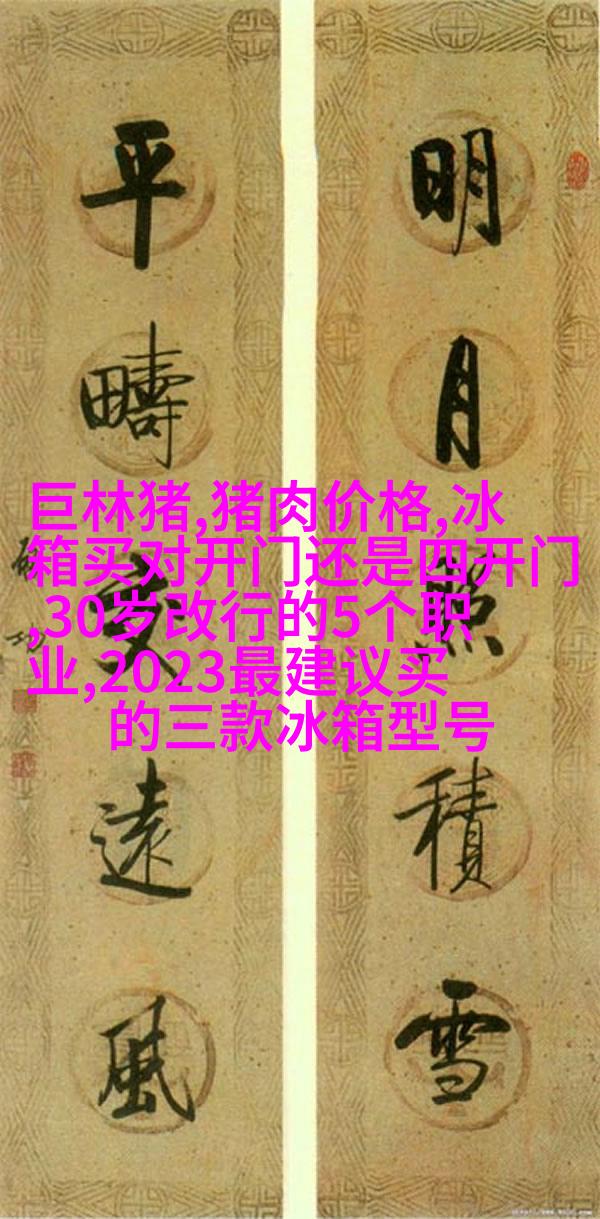 明月照積雪
平疇交遠風
啟功
巨林猪,猪肉价格,冰
箱买对开门还是四开门
,30岁改行的5个职
业,2023最建议买
的三款冰箱型号